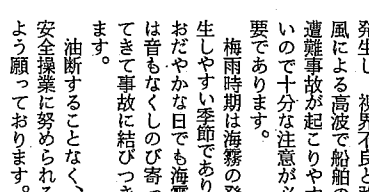 発生し、視界不良と強
風による高波で船舶の
遭難事故が起こりやす
いので十分な注意が必
要であります。
梅雨時期は海霧の発
生しやすい季節であり
おだやかな日でも海霧
は音もなくしのび寄っ
てきて事故に結びつき
ます。
油断することなく、
安全操業に努められる
よう願っております。